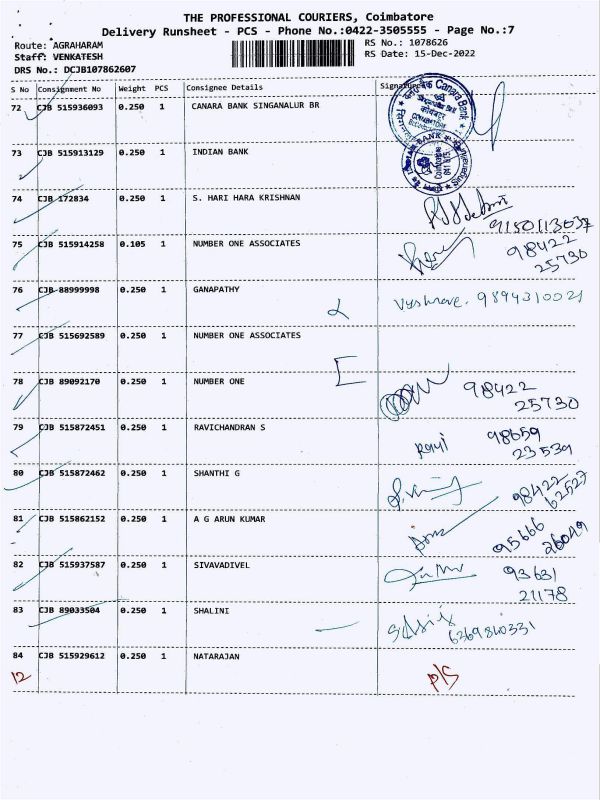 THE PROFESSIONAL COURIERS, Coimbatore
Delivery Runsheet - PCS - Phone No.:0422-3505555 - Page No.:7
Route: AGRAHARAM RS No.: 1078626
Staff: VENKATESH RS Date: 15-Dec-2022
DRS No.: DCJB107862607
S No Consignment No Weight PCS Consignee Details Signature
72 CJB 515936093 0.250 1 CANARA BANK SINGANALUR BR
Canara Bank
73 CJB 515913129 0.250 1 INDIAN BANK
BANK
74 CJB 172834 0.250 1 S. HARI HARA KRISHNAN
9150113037
75 CJB 515914258 0.105 1 NUMBER ONE ASSOCIATES 98422
25730
76 CJB 88999998 0.250 1 GANAPATHY
9894310021
77 CJB 515692589 0.250 1 NUMBER ONE ASSOCIATES
78 CJB 89092170 0.250 1 NUMBER ONE 98422
25730
79 CJB 515872451 0.250 1 RAVICHANDRAN S
Ravi 98659
23539
80 CJB 515872462 0.250 1 SHANTHI G 98422
62527
81 CJB 515862152 0.250 1 A G ARUN KUMAR
95666
26049
82 CJB 515937587 0.250 1 SIVAVADIVEL 93631
21178
83 CJB 89033504 0.250 1 SHALINI
6369840331
84 CJB 515929612 0.250 1 NATARAJAN
12 P/S